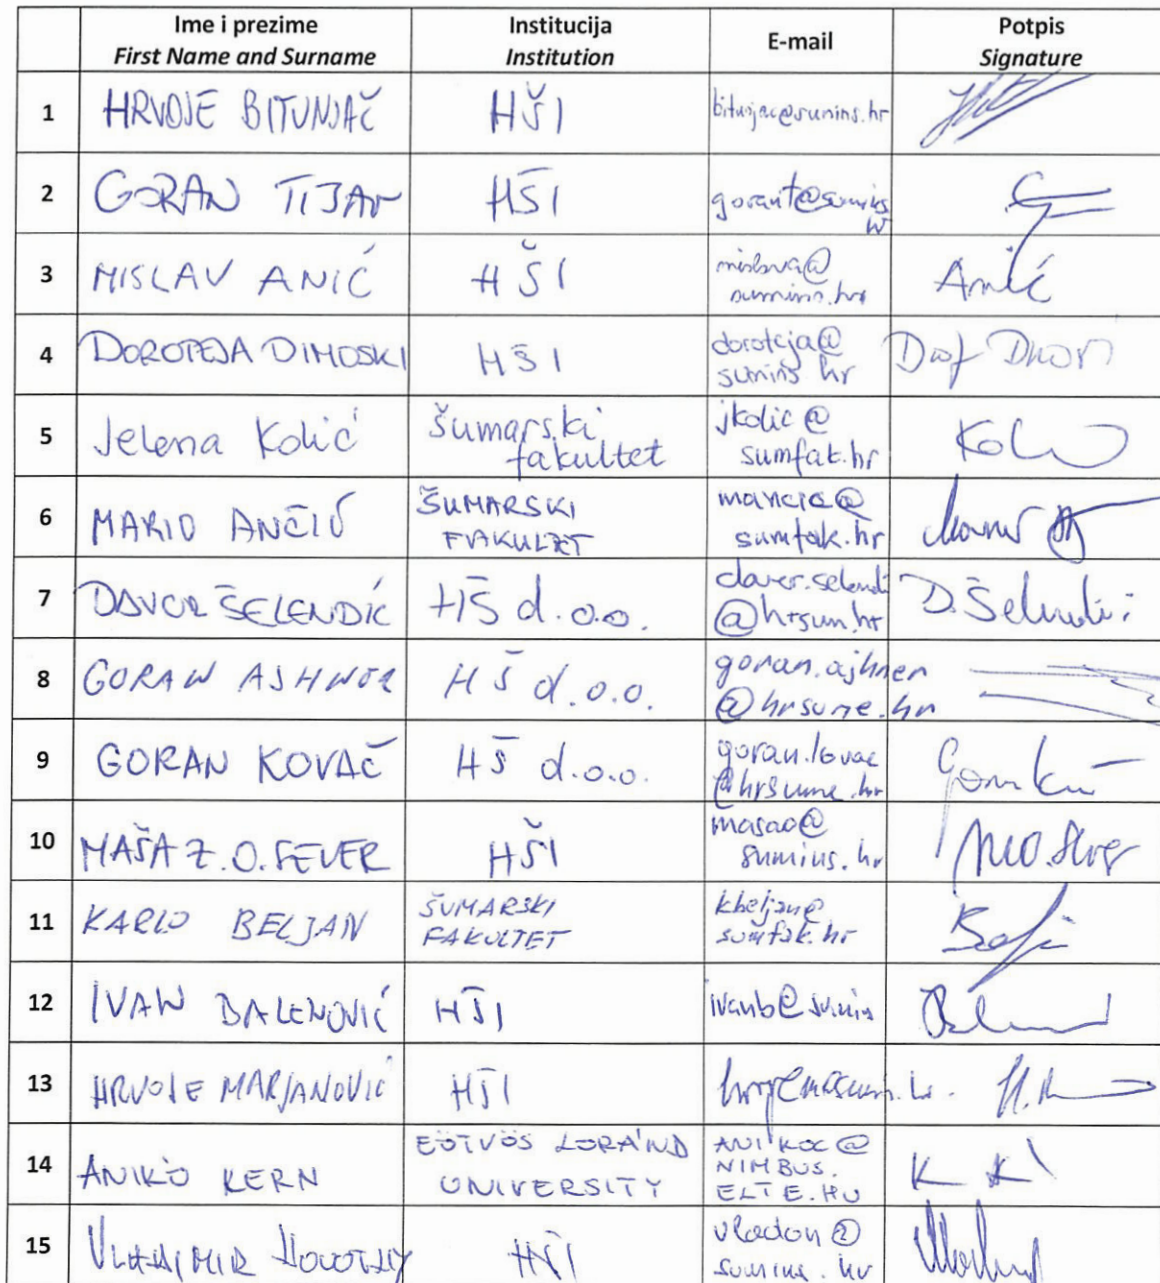 Ime i prezime Institucija E-mail Potpis
First Name and Surname Institution Signature
1 HRVOJE BITUNJAČ HŠI bitunjac@sumins.hr
2 GORAN TIJAN HŠI gorant@sumins
3 MISLAV ANIĆ HŠI mislava@ Anić
sumins.hr
4 DOROTEJA DIMOSKI HŠI doroteja@
sumins.hr
5 Jelena Kolić Šumarski jkolic@
fakultet sumfak.hr
6 MARIO ANČIĆ ŠUMARSKI mancic@
FAKULTET sumfak.hr
7 DAVOR ŠELENDIĆ HŠ d.o.o. davor.selendi
@hrsum.hr
8 GORAN AJHNER HŠ d.o.o. goran.ajhner
@hrsume.hr
9 GORAN KOVAČ HŠ d.o.o. goran.kovac
@hrsume.hr
10 MAŠA Z.O.SEVER HŠI masao@
sumins.hr
11 KARLO BELJAN ŠUMARSKI kbeljan@
FAKULTET sumfak.hr
12 IVAN BALENOVIĆ HŠI ivanb@sumins
13 HRVOJE MARJANOVIĆ HŠI
14 ANIKÓ KERN EÖTVÖS LORÁND ANIKOC@
UNIVERSITY NIMBUS.
ELTE.HU
15 VLADIMIR NOVOTNY HŠI vladon@
sumins.hr